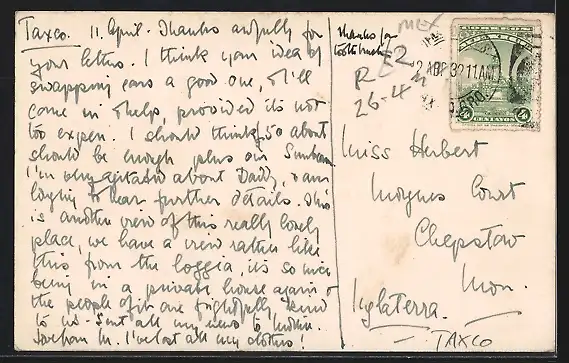 Taxco. 11. April. Thanks awfully for
your letter. I think your idea of
swapping cars a good one, & I'll
come in & help, provided its not
too expen. I should think £50 about
should be enough plus our Sunbeam
I'm very agitated about Daddy, & am
longing to hear further details. This
is another view of this really lovely
place, we have a view rather like
this from the loggia, its so nice
being in a private house again &
the people of it are frightfully kind
to us. Sent all my news to
I've lost all my clothes!
thanks for
toothbrush
MEX
R
26-4
ABR 32 11 AM
CENTAVOS
4
Miss Herbert
Moynes Court
Chepstow
Mon.
Inglaterra.
TAXCO